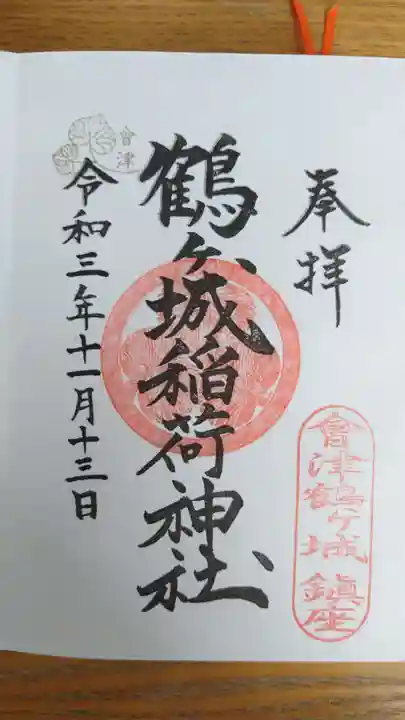 奉拝
會津鶴ヶ城鎮座
鶴ヶ城稲荷神社
會津
令和三年十一月十三日